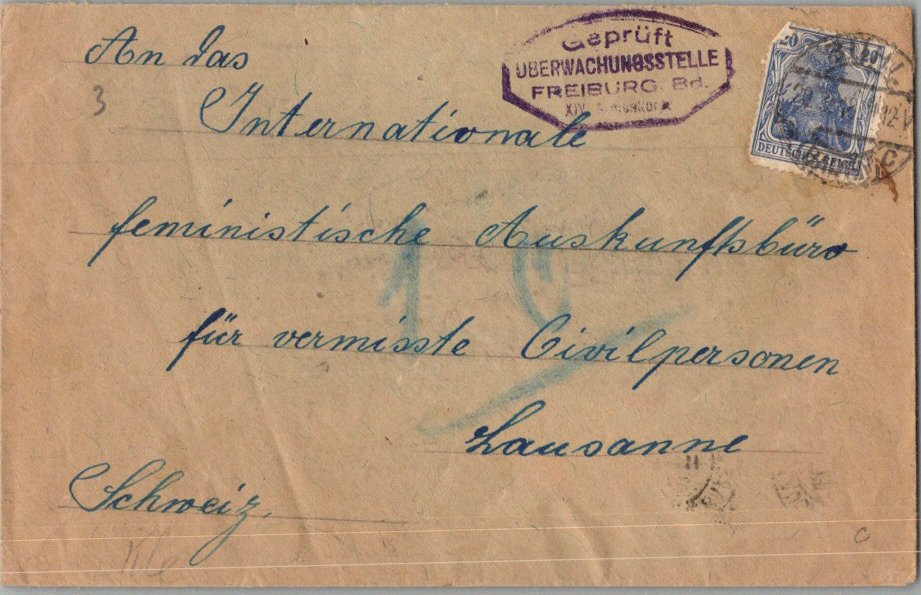 Geprüft
ÜBERWACHUNGSSTELLE
FREIBURG. Bd.
XIV.
20 20
DEUTSCHES REICH
12 V
C
An das
3
Internationale
feministische Auskunftsbüro
für vermisste Civilpersonen
Lausanne
Schweiz.
c